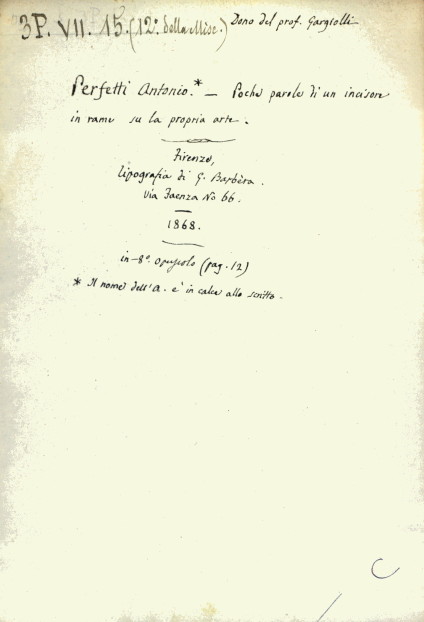 3P. VII. 15. (12º. della Misc.) Dono del prof. Gargiolli
Perfetti Antonio.* — Poche parole di un incisore
in rame su la propria arte.
Firenze,
tipografia di G. Barbèra.
Via Faenza No 66.
1868.
in-8º. opuscolo (pag. 12)
* Il nome dell'A. e' in calce allo scritto.
C